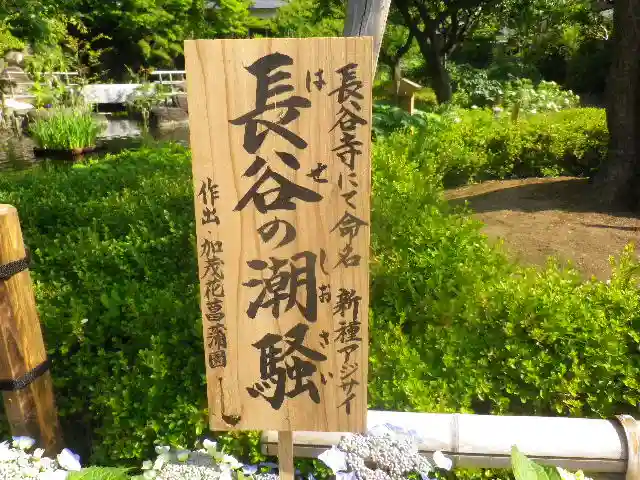 長谷寺にて命名 新種アジサイ
長谷の潮騒
はせ しおさい
作出・加茂花菖蒲園